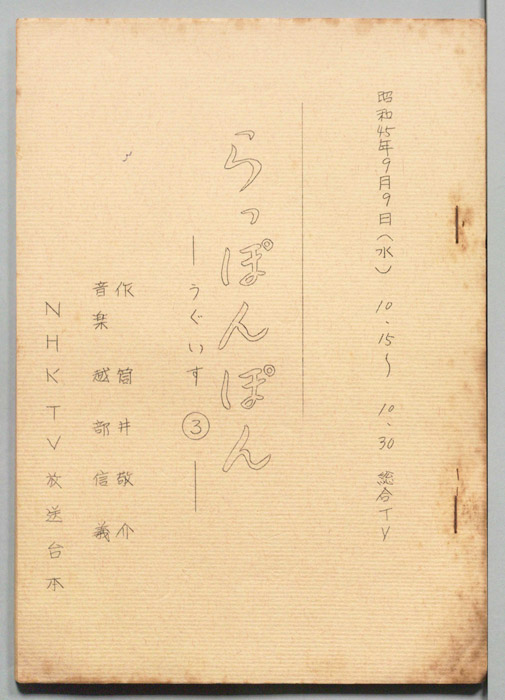 昭和45年9月9日(水) 10.15〜10.30 総合TV
らっぽんぽん
―うぐいす③―
作 筒井敬介
音楽 越部信義
NHKTV放送台本